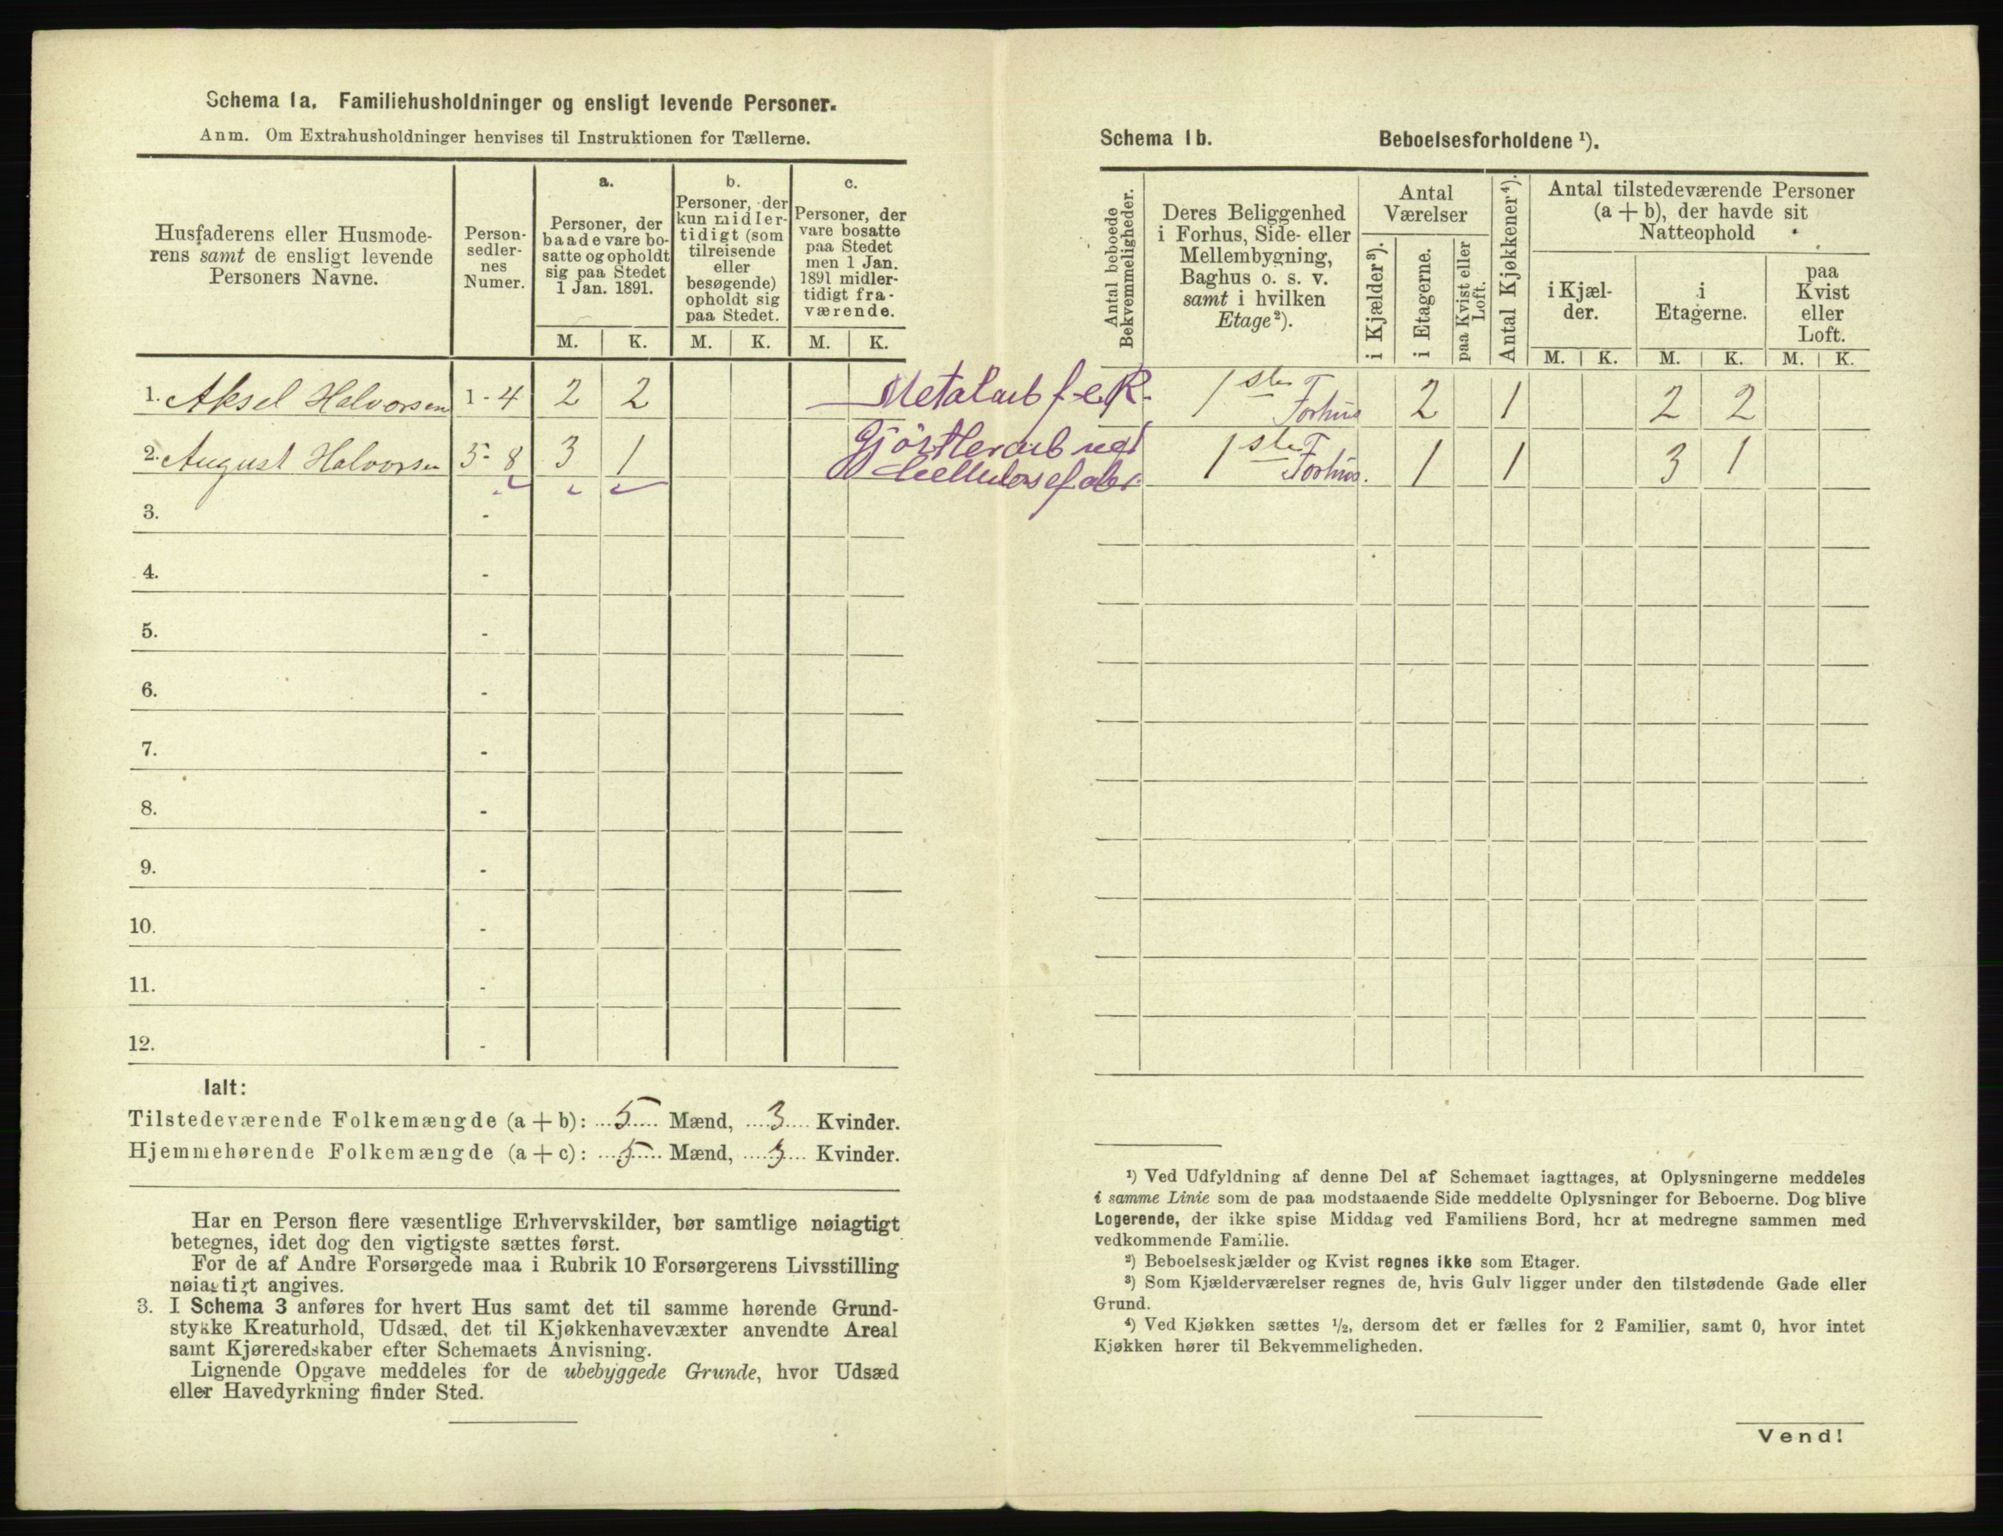 Schema 1a. Familiehusholdninger og ensligt levende Personer.
Anm. Om Extrahusholdninger henvises til Instruktionen for Tællerne.
Husfaderens eller Husmode-
rens samt de ensligt levende
Personers Navne.
Person-
sedler-
nes
Numer.
a.
Personer, der
baade vare bo-
satte og opholdt
sig paa Stedet
1 Jan. 1891.
b.
Personer, der
kun midler-
tidigt (som
tilreisende
eller
besøgende)
opholdt sig
paa Stedet.
c.
Personer, der
vare bosatte
paa Stedet
men 1 Jan.
1891 midler-
tidigt fra-
værende.
M. K. M. K. M. K.
1. Aksel Halvorsen 1 - 4 2 2 Metalarb
2. August Halvorsen 5 - 8 3 1
3. -
4. -
5. -
6. -
7. -
8. -
9. -
10. -
11. -
12. -
Ialt:
Tilstedeværende Folkemængde (a + b): 5 Mænd, 3 Kvinder.
Hjemmehørende Folkemængde (a + c): 5 Mænd, 3 Kvinder.
Har en Person flere væsentlige Erhvervskilder, bør samtlige nøiagtigt
betegnes, idet dog den vigtigste sættes først.
For de af Andre Forsørgede maa i Rubrik 10 Forsørgerens Livsstilling
nøiagtigt angives.
3. I Schema 3 anføres for hvert Hus samt det til samme hørende Grund-
stykke Kreaturhold, Udsæd, det til Kjøkkenhavevæxter anvendte Areal
samt Kjøreredskaber efter Schemaets Anvisning.
Lignende Opgave meddeles for de ubebyggede Grunde, hvor Udsæd
eller Havedyrkning finder Sted.
Schema 1b. Beboelsesforholdene ¹).
Antal beboede
Bekvemmeligheder.
Deres Beliggenhed
i Forhus, Side- eller
Mellembygning,
Baghus o. s. v.
samt i hvilken
Etage²).
Antal
Værelser
i Kjælder³).
i Etagerne.
paa Kvist eller
Loft.
Antal Kjøkkener⁴).
Antal tilstedeværende Personer
(a + b), der havde sit
Natteophold
i Kjæl-
der.
i
Etagerne.
paa
Kvist
eller
Loft.
M. K. M. K. M. K.
1ste Forhus 2 1 2 2
Cellulosefabr. 1ste Forhus. 1 1 3 1
¹) Ved Udfyldning af denne Del af Schemaet iagttages, at Oplysningerne meddeles
i samme Linie som de paa modstaaende Side meddelte Oplysninger for Beboerne. Dog blive
Logerende, der ikke spise Middag ved Familiens Bord, her at medregne sammen med
vedkommende Familie.
²) Beboelseskjælder og Kvist regnes ikke som Etager.
³) Som Kjælderværelser regnes de, hvis Gulv ligger under den tilstødende Gade eller
Grund.
⁴) Ved Kjøkken sættes ½, dersom det er fælles for 2 Familier, samt 0, hvor intet
Kjøkken hører til Bekvemmeligheden.
Vend!